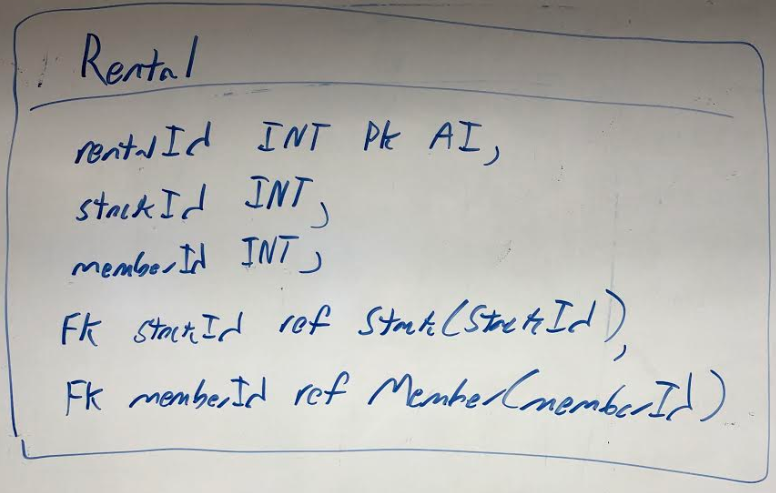 Rental
rentalId INT PK AI,
stockId INT,
memberId INT,
FK stockId ref Stock(StockId),
FK memberId ref Member(memberId)